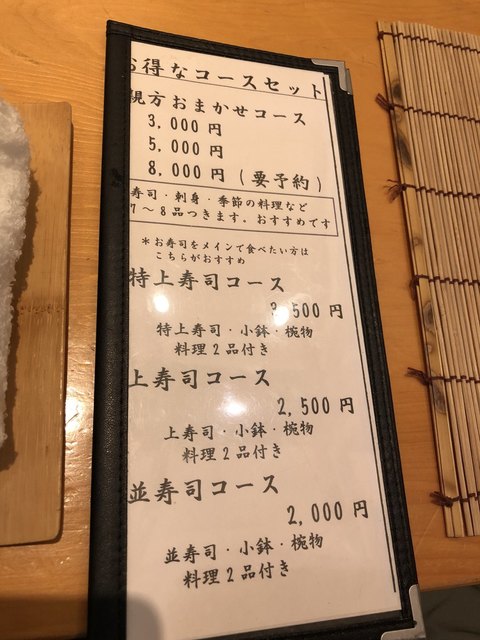 お得なコースセット
親方おまかせコース
3,000 円
5,000 円
8,000 円 (要予約)
寿司・刺身・季節の料理など
7～8品つきます。おすすめです
＊お寿司をメインで食べたい方は
こちらがおすすめ
特上寿司コース
3,500 円
特上寿司・小鉢・椀物
料理2品付き
上寿司コース
2,500 円
上寿司・小鉢・椀物
料理2品付き
並寿司コース
2,000 円
並寿司・小鉢・椀物
料理2品付き